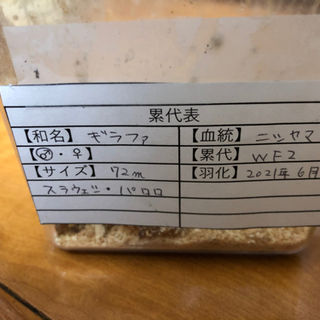 累代表
【和名】 ギラファ 【血統】 ニシヤマ
【♂・♀】 【累代】 WF2
【サイズ】 72m 【羽化】 2021年6月
スラウェシ・パロロ